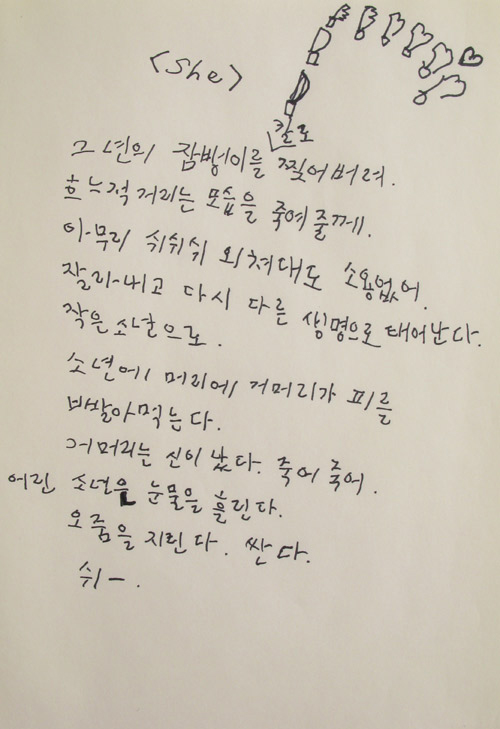 <She>
그 년의 잠방이를 칼로 찢어버려.
흐느적 거리는 모습을 죽여줄께.
아무리 쉬쉬쉬 외쳐대도 소용없어.
잘라내고 다시 다른 생명으로 태어난다.
작은 소년으로.
소년에 머리에 거머리가 피를
빨아먹는다.
거머리는 신이 났다. 죽어 죽어.
어린 소년은 눈물을 흘린다.
오줌을 지린다. 싼다.
쉬ㅡ.